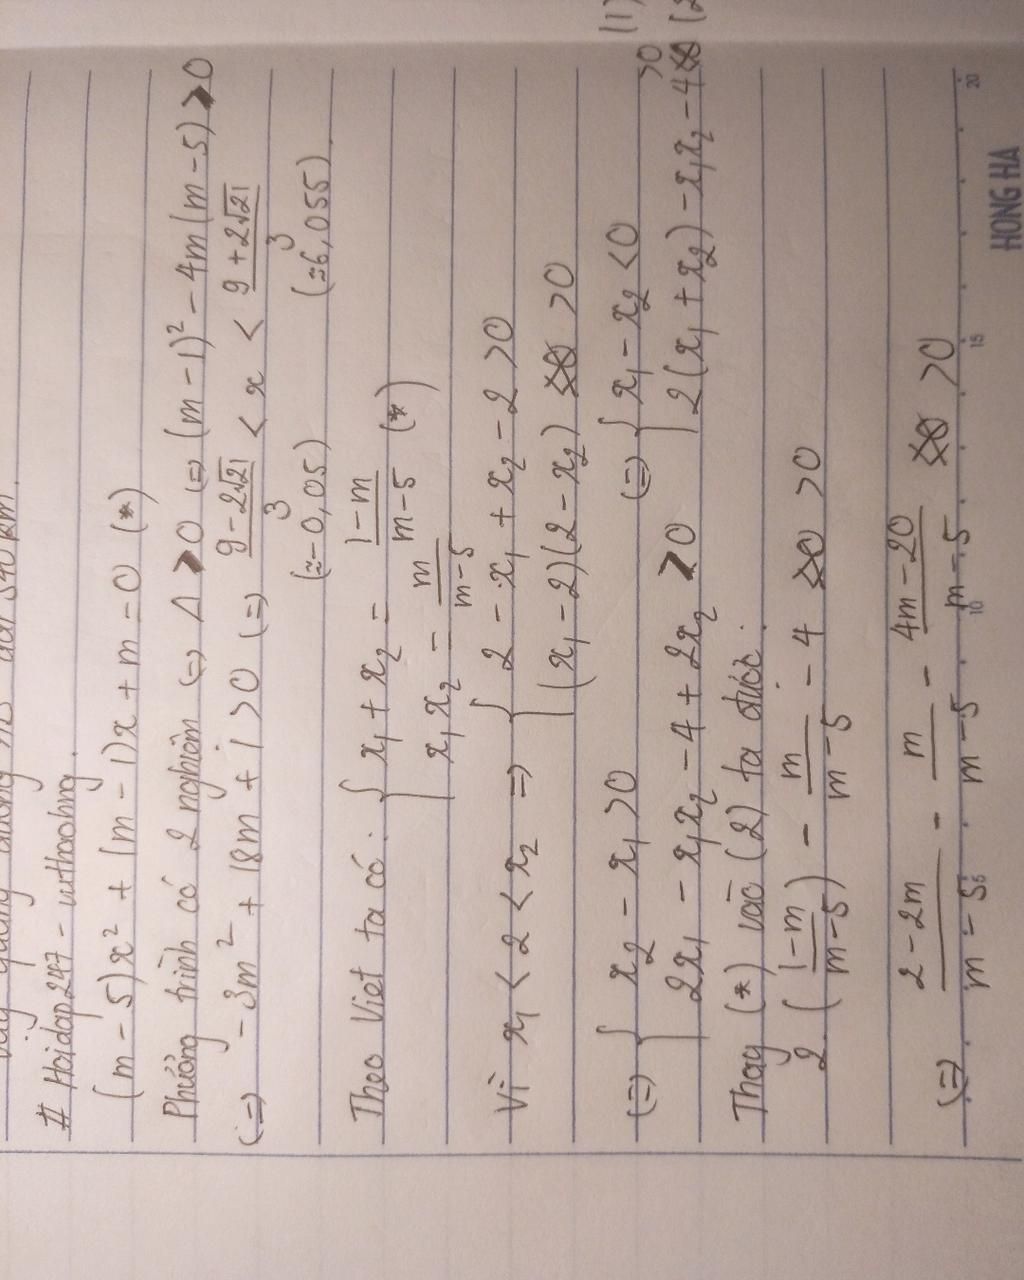 # Hoidap247 - vuthaohng.
(m - 5)x² + (m - 1)x + m = 0 (*)
Phương trình có 2 nghiệm (=) Δ > 0 (=) (m - 1)² - 4m(m - 5) > 0
(=) -3m² + 18m + 1 > 0 (=) (9 - 2√21)/3 < x < (9 + 2√21)/3
(≈ -0,05) (≈ 6,055)
Theo Viet ta có: { x₁ + x₂ = (1 - m)/(m - 5)
x₁x₂ = m/(m - 5) (*)
Vì x₁ < 2 < x₂ => { 2 - x₁ + x₂ - 2 > 0
(x₁ - 2)(2 - x₂) > 0
(=) { x₂ - x₁ > 0 (=) { x₁ - x₂ < 0 (1)
2x₁ - x₁x₂ - 4 + 2x₂ > 0 2(x₁ + x₂) - x₁x₂ - 4 > 0 (2
Thay (*) vào (2) ta được:
2((1 - m)/(m - 5)) - m/(m - 5) - 4 > 0
(=) (2 - 2m)/(m - 5) - m/(m - 5) - (4m - 20)/(m - 5) > 0
5 10 15 20
HONG HA